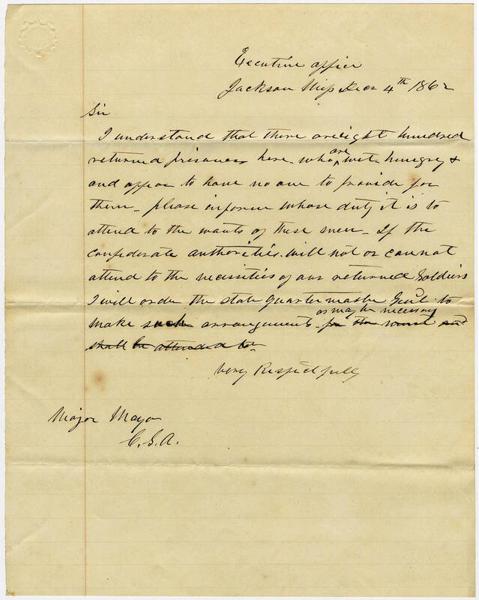 Executive office
Jackson Miss Decr 4th 1862
Sir
I understand that there are eight hundred
returned prisoners here who are quite hungry &
and appear to have no one to provide for
them - please inform whose duty it is to
attend to the wants of these men - If the
confederate authorities will not or cannot
attend to the necessities of our returned Soldiers
I will order the state Quarter master Genl to
as may be necessary
make such arrangements for the
shall be attended to
Very Respectfully
Major Mayo
C.S.A.